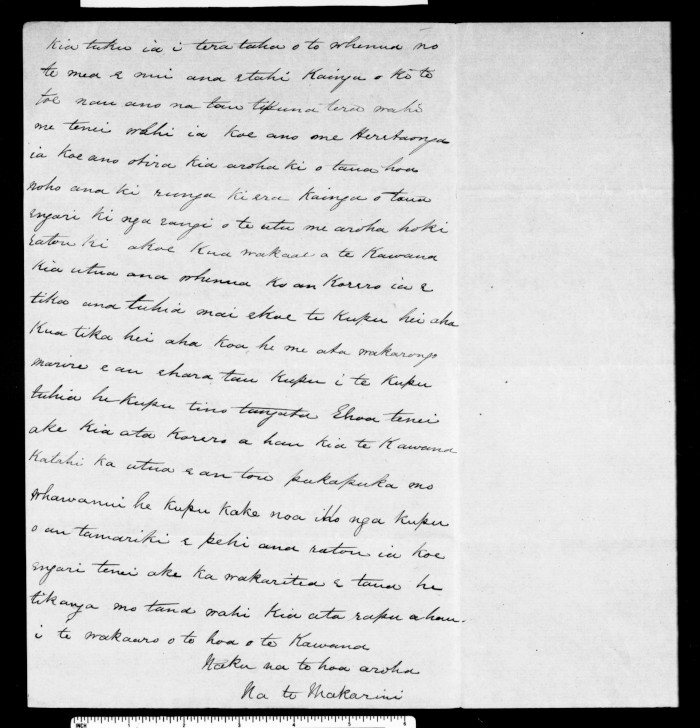 Kia tuku ia i tera taha o to whenua no
te mea e nui ana etahi Kainga o Ko te
toe nau ano na tau tipuna tera wahi
me tenei wahi ia Koe ano me Heretaonga
ia Koe ano otira kia aroha ki o taua hoa
noho ana ki runga ki era Kainga o taua
engari ki nga rangi o te utu me aroha hoki
ratou ki a koe Kua wakaae a te Kawana
Kia utua ana whenua Ko an Korero ia e
tika ana tuhia mai e koe te Kupu hei aha
Kua tika hei aha koa he me ata wakarongo
marire e au ehara tau Kupu i te Kupu
tuhia he Kupu tino tangata Ehoa tenei
ake Kia ata Korero a hau kia te Kawana
Katahi Ka utua e au tou pukapuka mo
Whawanui he Kupu Kake noa iho nga Kupu
o au tamariki e pehi ana ratou ia koe
engari tenei ake Ka wakaritea e taua he
tikanga mo taua wahi Kia ata rapu ahau.
i te wakaaro o to hoa o te Kawana
Naku na to hoa aroha
Na te Makarini
INCH 1 2 3 4 5 6